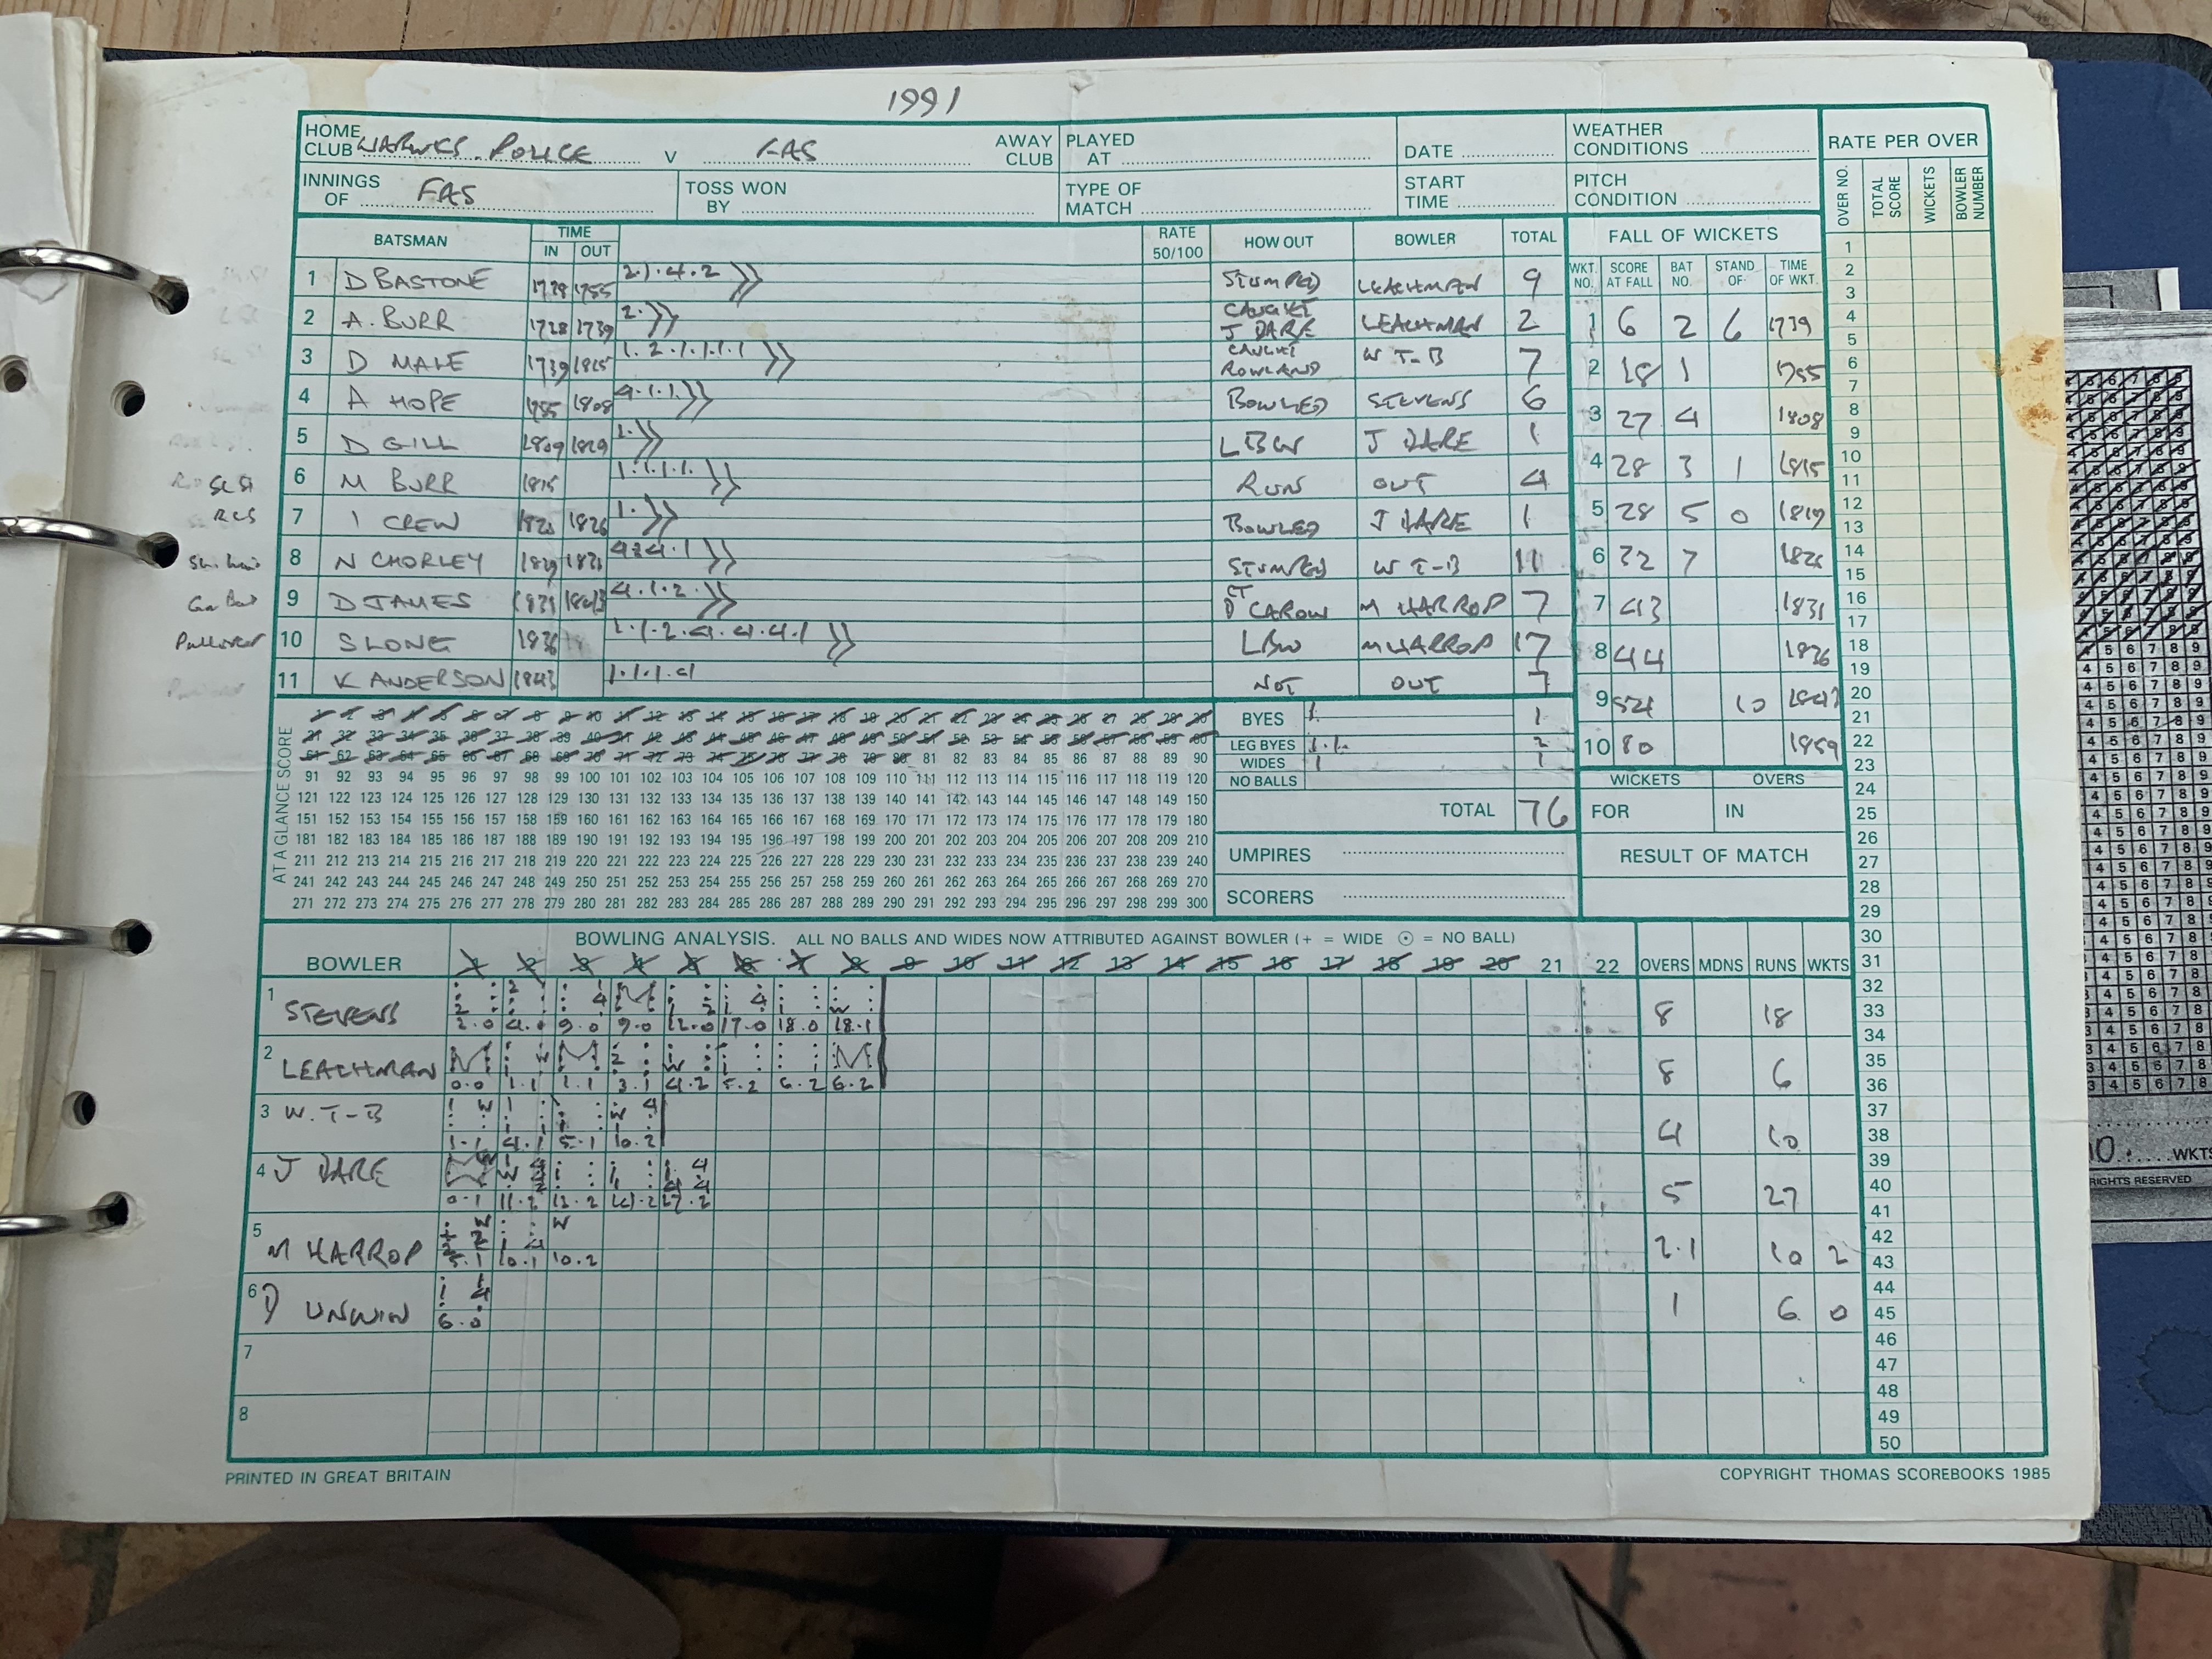 1991
HOME CLUB WARWKS. POLICE V FAS AWAY CLUB PLAYED AT DATE WEATHER CONDITIONS RATE PER OVER
INNINGS OF FAS TOSS WON BY TYPE OF MATCH START TIME PITCH CONDITION
OVER NO. TOTAL SCORE WICKETS BOWLER NUMBER
BATSMAN TIME IN OUT RATE 50/100 HOW OUT BOWLER TOTAL FALL OF WICKETS
WKT. NO. SCORE AT FALL BAT NO. STAND OF TIME OF WKT.
1 D BASTONE 1728 1755 2.1.4.2 STUMPED LEACHMAN 9
2 A. BURR 1728 1739 2. CAUGHT J DARE LEACHMAN 2
3 D MALE 1739 1815 1.2.1.1.1.1 CAUGHT ROWLAND W T-B 7
4 A HOPE 1755 1808 4.1.1 BOWLED STEVENS 6
5 D GILL 1809 1819 1. LBW J DARE 1
6 M BURR 1815 1.1.1.1. RUN OUT 4
7 I CREW 1820 1826 1. BOWLED J DARE 1
8 N CHORLEY STUMPED W T-B 11
9 D JAMES 4.1.2. CT D CAROW M HARROP 7
10 S LONG 1836 1.1.2.4.4.4.1 LBW M HARROP 17
11 K ANDERSON 1843 1.1.1.4 NOT OUT 7
1 6 2 6 1739
2 18 1 1755
3 27 4 1808
4 28 3 1 1815
5 28 5 0 1819
6 32 7 1826
7 43 1831
8 44 1836
9 54 10 1843
10 80 1859
AT A GLANCE SCORE
1 2 3 4 5 6 7 8 9 10 11 12 13 14 15 16 17 18 19 20 21 22 23 24 25 26 27 28 29 30
31 32 33 34 35 36 37 38 39 40 41 42 43 44 45 46 47 48 49 50 51 52 53 54 55 56 57 58 59 60
61 62 63 64 65 66 67 68 69 70 71 72 73 74 75 76 77 78 79 80 81 82 83 84 85 86 87 88 89 90
91 92 93 94 95 96 97 98 99 100 101 102 103 104 105 106 107 108 109 110 111 112 113 114 115 116 117 118 119 120
121 122 123 124 125 126 127 128 129 130 131 132 133 134 135 136 137 138 139 140 141 142 143 144 145 146 147 148 149 150
151 152 153 154 155 156 157 158 159 160 161 162 163 164 165 166 167 168 169 170 171 172 173 174 175 176 177 178 179 180
181 182 183 184 185 186 187 188 189 190 191 192 193 194 195 196 197 198 199 200 201 202 203 204 205 206 207 208 209 210
211 212 213 214 215 216 217 218 219 220 221 222 223 224 225 226 227 228 229 230 231 232 233 234 235 236 237 238 239 240
241 242 243 244 245 246 247 248 249 250 251 252 253 254 255 256 257 258 259 260 261 262 263 264 265 266 267 268 269 270
271 272 273 274 275 276 277 278 279 280 281 282 283 284 285 286 287 288 289 290 291 292 293 294 295 296 297 298 299 300
BYES 1. 1
LEG BYES 1.1. 2
WIDES 1 1
NO BALLS
TOTAL 76
UMPIRES
SCORERS
WICKETS OVERS
FOR IN
RESULT OF MATCH
BOWLING ANALYSIS. ALL NO BALLS AND WIDES NOW ATTRIBUTED AGAINST BOWLER (+ = WIDE ⊙ = NO BALL)
BOWLER 1 2 3 4 5 6 7 8 9 10 11 12 13 14 15 16 17 18 19 20 21 22 OVERS MDNS RUNS WKTS
1 STEVENS 2.0 4.0 9.0 9.0 12.0 17.0 18.0 18.1 8 18
2 LEACHMAN 0.0 1.1 1.1 3.1 4.2 5.2 6.2 6.2 8 6
3 W.T-B 1.1 4.1 5.1 10.2 4 10
4 J DARE 0.1 11.2 13.2 27.2 5 27
5 M HARROP 5.1 10.1 10.2 2.1 10 2
6 D UNWIN 6.0 1 6 0
7
8
1
2
3
4
5
6
7
8
9
10
11
12
13
14
15
16
17
18
19
20
21
22
23
24
25
26
27
28
29
30
31
32
33
34
35
36
37
38
39
40
41
42
43
44
45
46
47
48
49
50
Pullover
WKTS
RIGHTS RESERVED
PRINTED IN GREAT BRITAIN
COPYRIGHT THOMAS SCOREBOOKS 1985